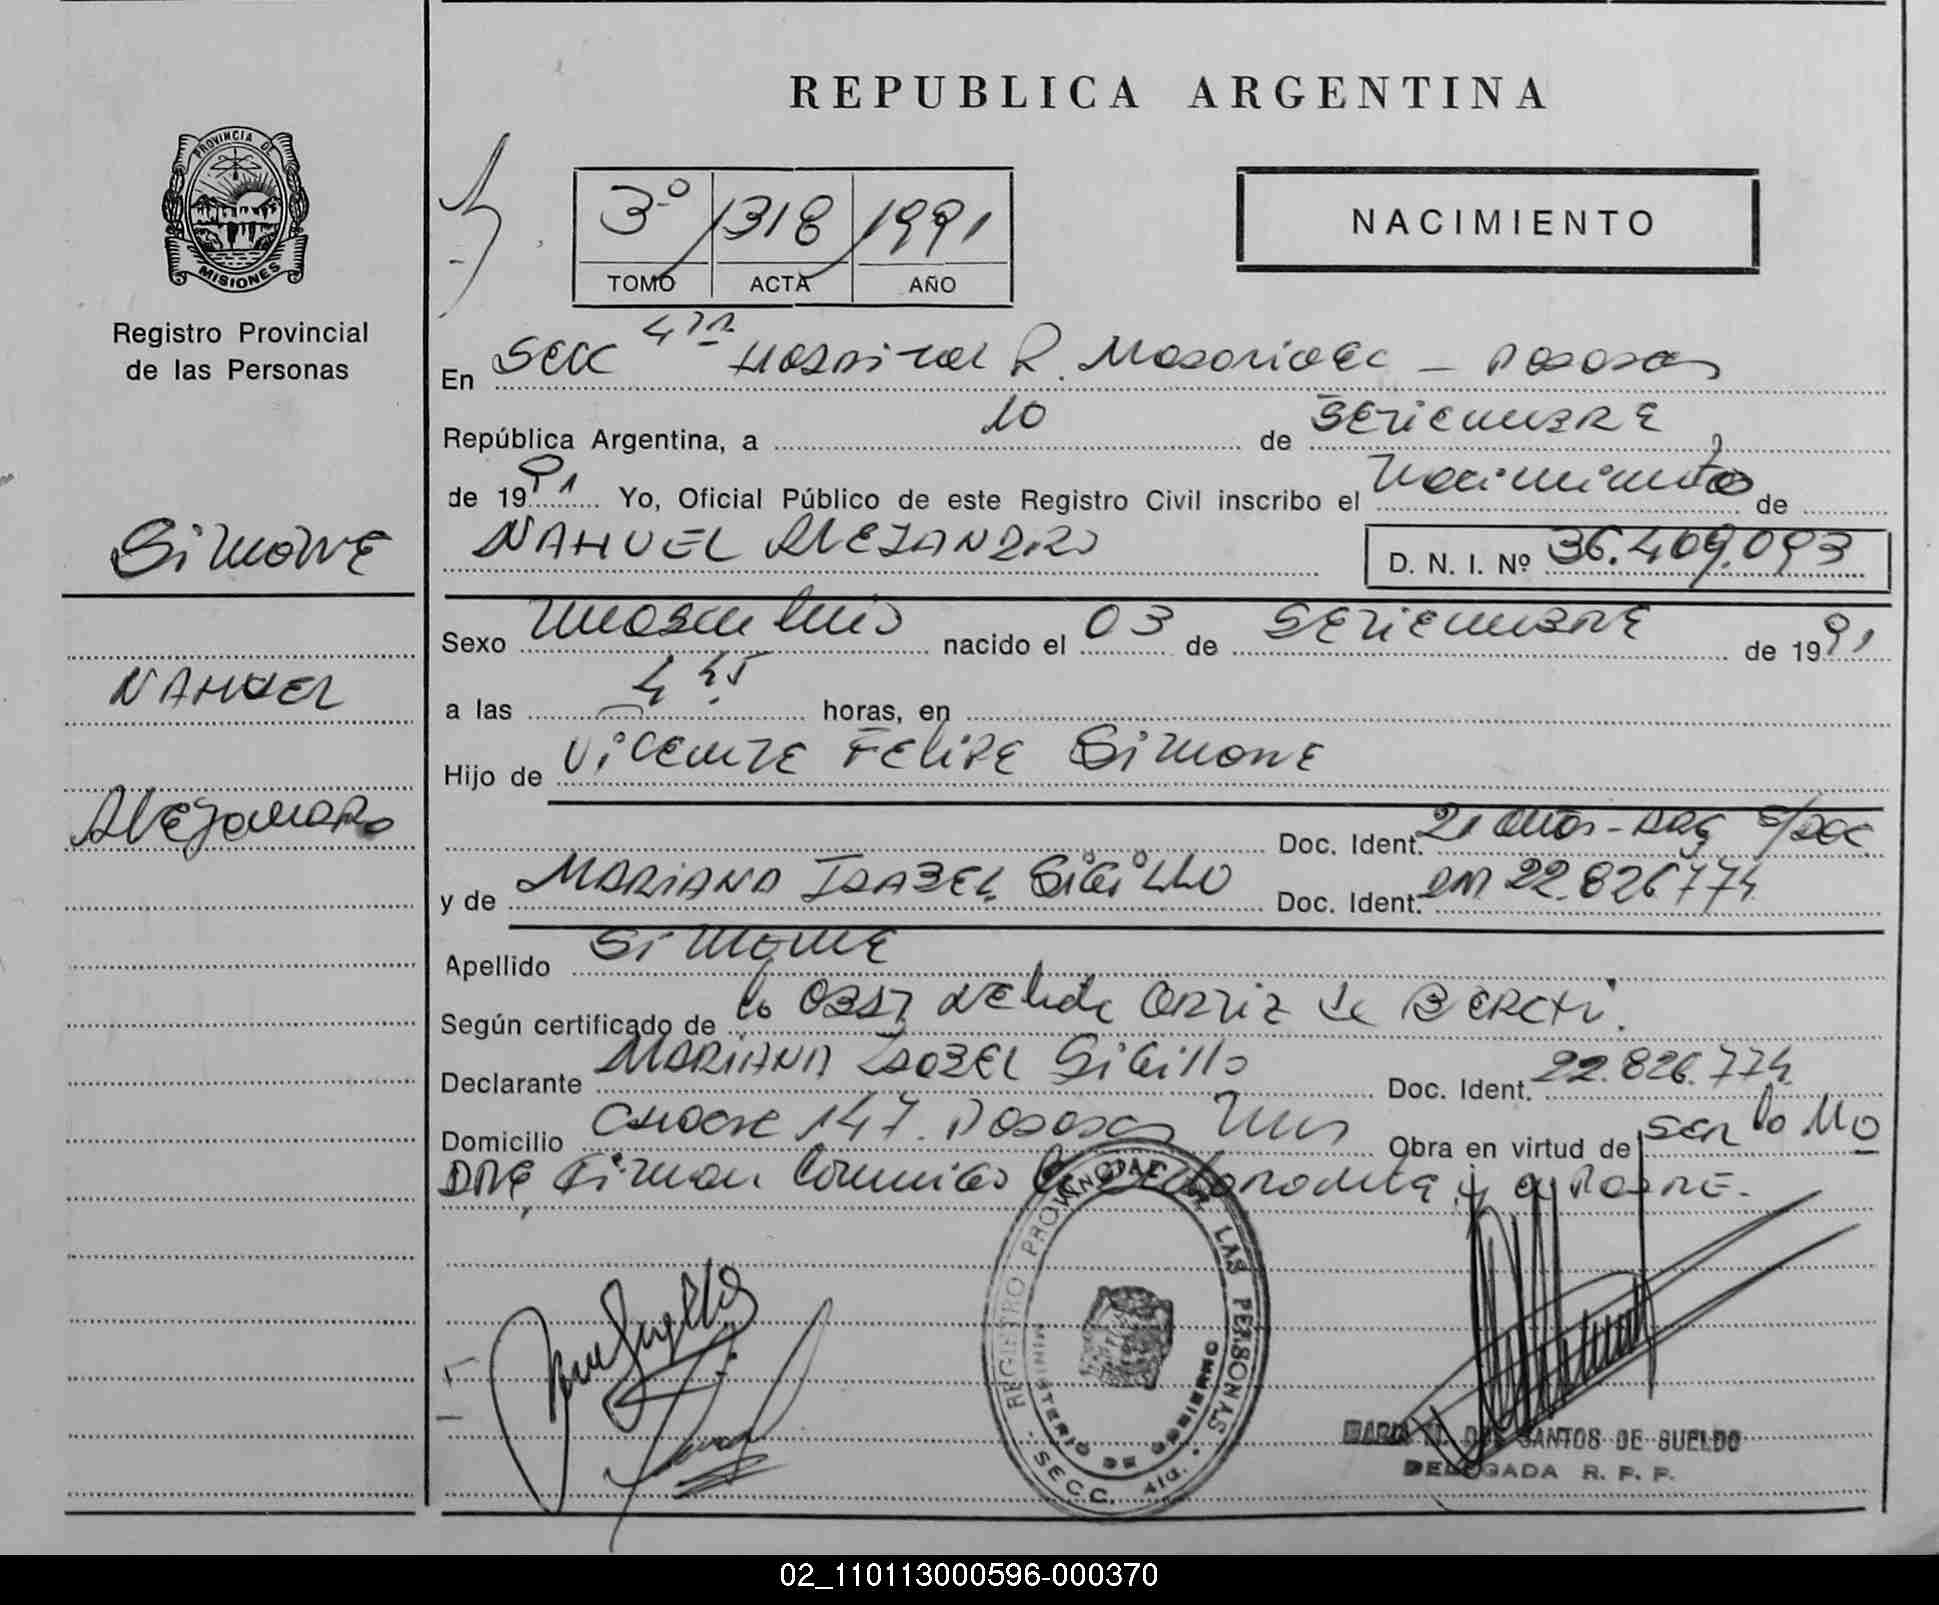 REPUBLICA ARGENTINA
PROVINCIA DE
MISIONES
Registro Provincial
de las Personas
3º 1318 1991
TOMO ACTA AÑO
NACIMIENTO
En Secc 4ta Hospital R. Madariaga - Posadas
República Argentina, a 10 de SETIEMBRE
de 1991 Yo, Oficial Público de este Registro Civil inscribo el Nacimiento de
NAHUEL ALEJANDRO
D. N. I. Nº 36.409.093
Simone
NAHUEL
Alejandro
Sexo masculino nacido el 03 de SETIEMBRE de 1991
a las 4 45 horas, en
Hijo de Vicente Felipe Simone
Doc. Ident. 21 años - Arg s/doc
y de MARIANA ISABEL Sigillo Doc. Ident. DNI 22.826774
Apellido Simone
Según certificado de la Obst Nelida Ortiz de
Declarante MARIANA ISABEL Sigillo Doc. Ident. 22.826.774
Domicilio 147. Posadas Mns Obra en virtud de ser la Ma
dre, Firman la y el PADRE.
REGISTRO PROVINCIAL DE LAS PERSONAS
MINISTERIO DE GOBIERNO
SECC. 4ta.
MARIA DOS SANTOS DE SUELDO
DELEGADA R. P. P.
02_110113000596-000370